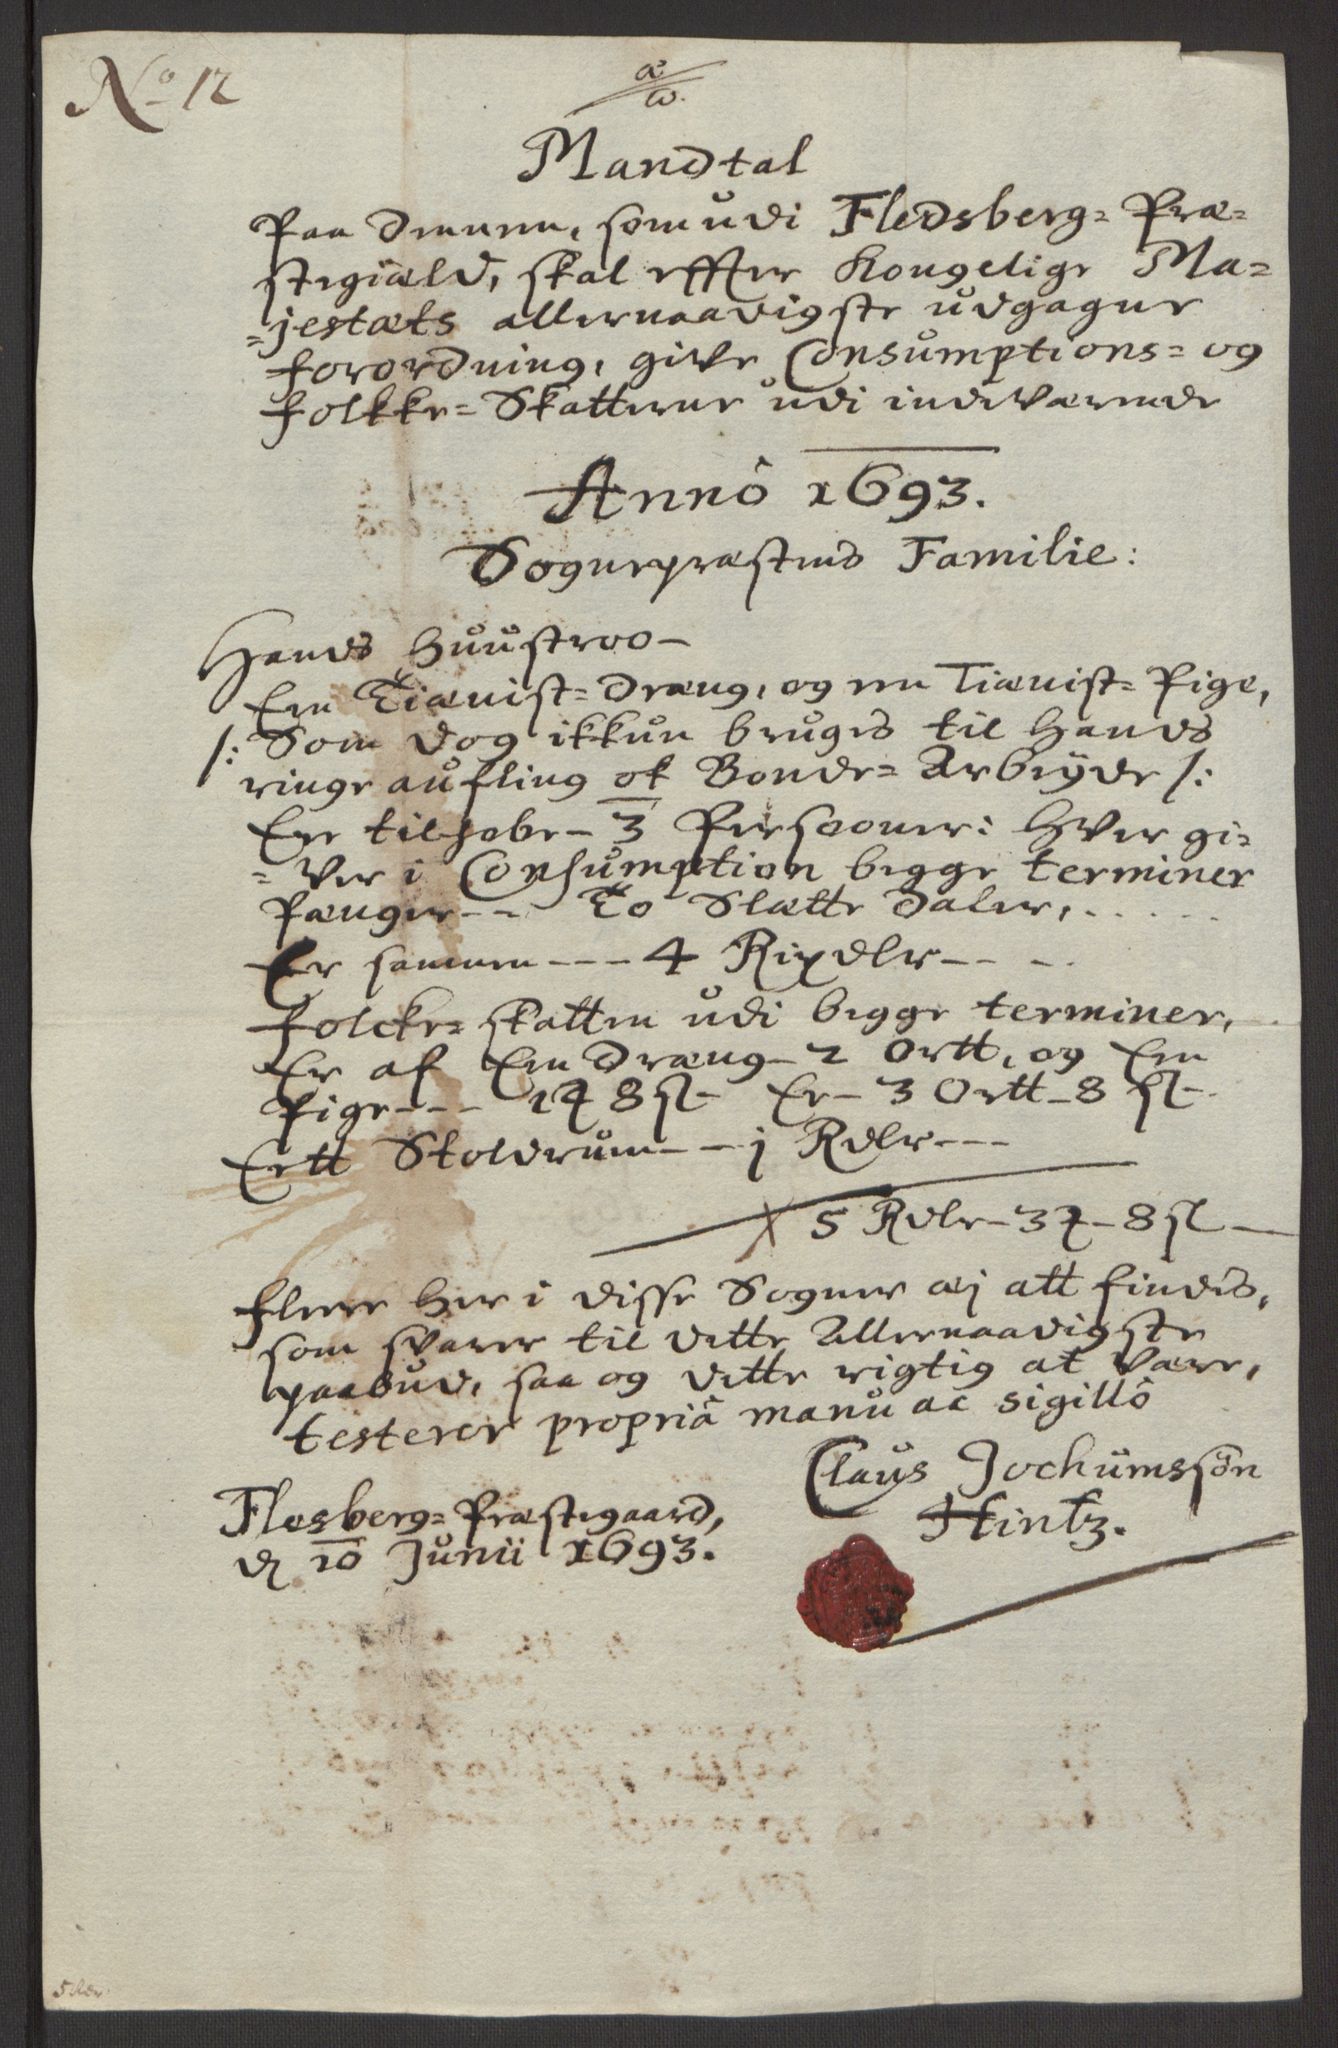 No 12
α/ω.
Mandtal
Paa dennem, som udi Fledsberg= Præ=
stegiæld, skal effter Kongelige Ma=
=jestæts allernaadigste udgagne
forordning, give Consumptions= og
folkke= Skatterne udi indeværende
Anno 1693.
Sognepræstens Familie:
Hands huustroo-
Een Tiænist= dræng, og een Tiænist= Pige,
/: Som dog ikkun bruges til hands
ringe aufling ok Bonde= Arbeyde /:
Ere tilhobe - 3 Persooner: hver gi=
=ver i Consumption begge terminer
Pænger -- To Slætte daler, . . . . .
Er sammen --- 4 Rixdlr -- --
folcke= skatten udi begge terminer,
Er af Een dræng - 2 Ortt, og Een
Pige --- 1 ꝶ 8 sl- Er - 3 Ortt - 8 sl-
Ett Stoldrum -- j Rdlr ---
5 Rdlr - 3 ꝶ - 8 sl -
fleere her i disse Sogner æj att findes,
som svarer til dette Allernaadigste
paabud, saa og dette rigtig at være,
testerer propriâ manu ac sigillô
Claus Jochumssøn
Hintz.
Flesberg= Præstegaard,
d 10 Junii 1693.
5 dlr